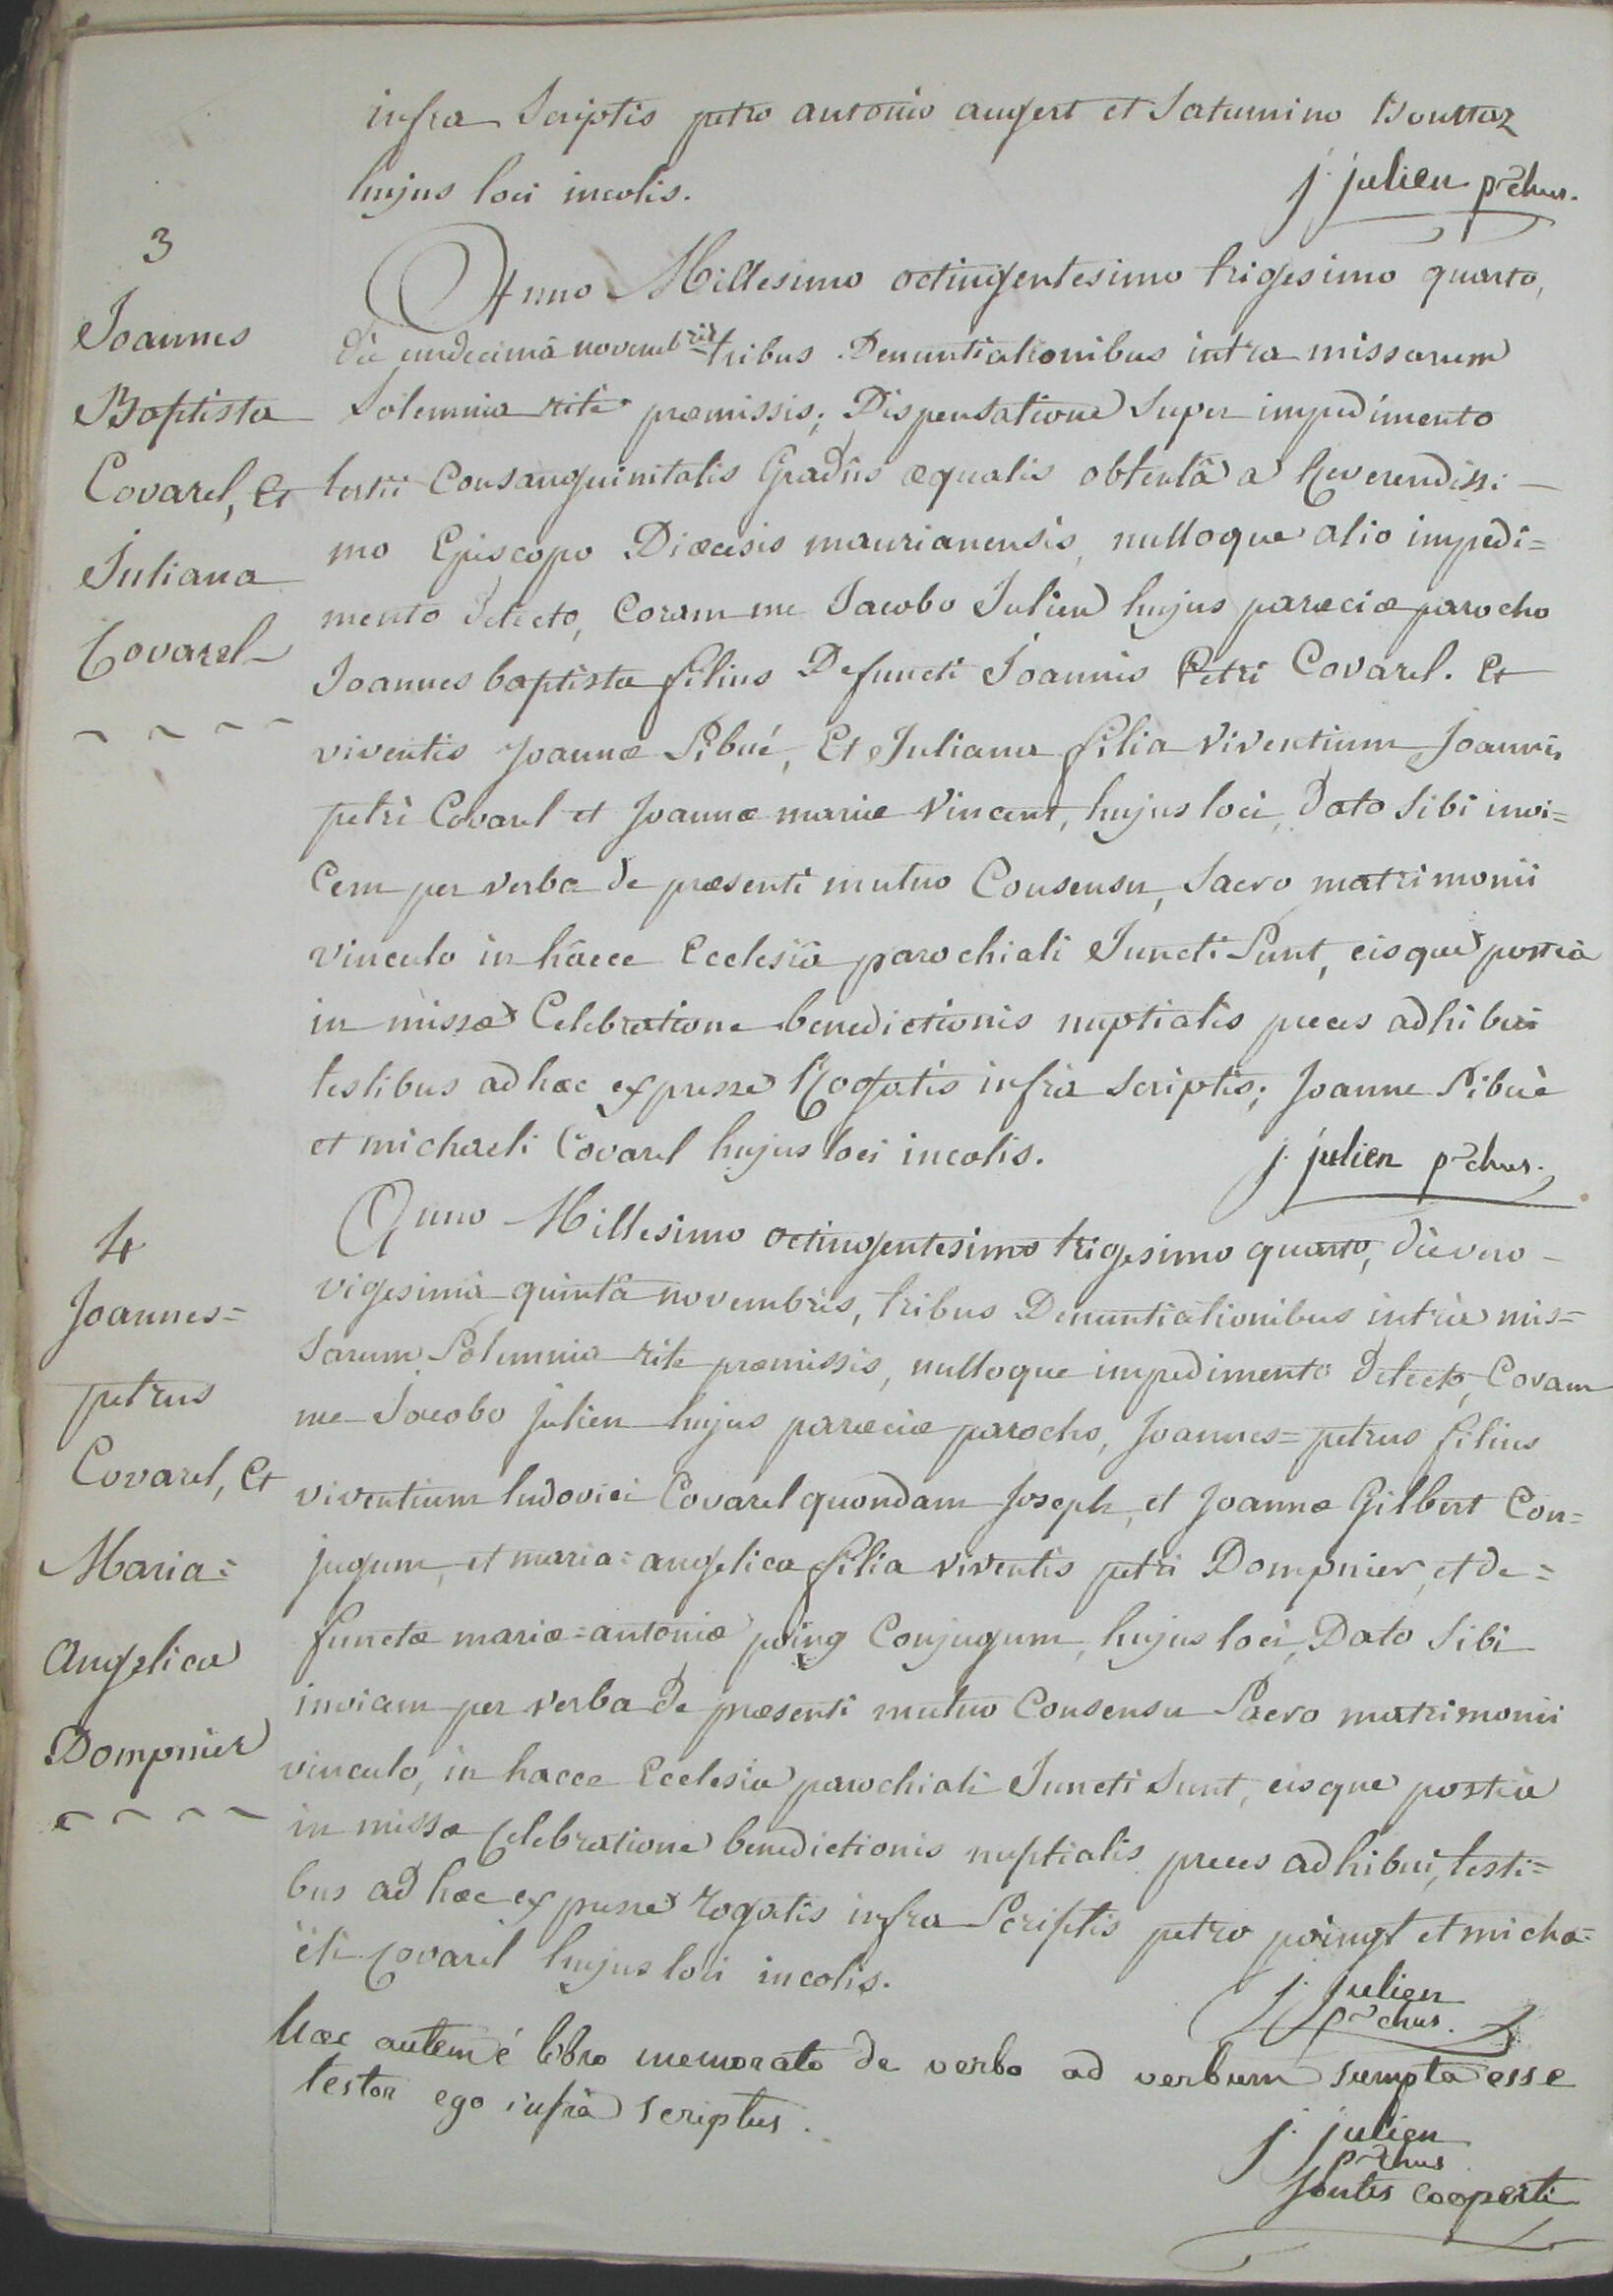 infra Scriptis petro antonio augert et Saturnino Bouttaz
hujus loci incolis.
j. julien p~chus.
3
Joannes
Baptista
Covarel, Et
Juliana
Covarel
Anno Millesimo octingentesimo trigesimo quarto,
die undecimâ novembris tribus Denuntiationibus intra missarum
Solemnia rite præmissis; Dispensatione Super impedimento
tertii Consanguinitatis Gradûs æqualis obtentâ a Reverendissi-
mo Episcopo Diæcesis maurianensis, nulloque alio impedi=
mento detecto, Coram me Jacobo Julien hujus paræciæ parocho
Joannes baptista filius Defuncti Joannis Petri Covarel. Et
viventis Joannæ Sibué, Et Juliana filia viventium Joannis
petri Covarel et Joannæ mariæ Vincent, hujus loci, Dato Sibi invi=
Cem per verba de præsenti mutuo Consensu, Sacro matrimonii
vinculo in hâcce Ecclesiâ parochiali Juncti Sunt, eisque posteà
in missæ Celebratione benedictionis nuptialis preces adhibui
testibus ad hæc expresse Rogatis infra scriptis; Joanne Sibué
et michaeli Covarel hujus loci incolis.
j. julien p~chus.
4
Joannes=
petrus
Covarel, Et
Maria=
Angelica
Dompnier
Anno Millesimo octingentesimo trigesimo quarto, die vero
vigesimâ quintâ novembris, tribus Denuntiationibus intrà mis=
sarum Solemnia rite præmissis, nulloque impedimento Detecto, Coram
me Jacobo julien hujus paræciæ parocho, Joannes=petrus filius
viventium ludovici Covarel quondam Joseph, et Joannæ Gilbert Con=
jugum, et maria=angelica filia viventis petri Dompnier, et de=
functæ mariæ=antoniæ poing Conjugum, hujus loci, Dato Sibi
invicem per verba de præsenti mutuo Consensu Sacro matrimonii
vinculo, in hacce Ecclesia parochiali Juncti Sunt, eisque posteà
in missæ Celebratione benedictionis nuptialis preces adhibui, testi=
bus ad hæc expresse rogatis infra Scriptis petro poingt et micha=
ëli Covarel hujus loci incolis.
j. julien
p~chus.
hæc autem é libro memorato de verbo ad verbum sumpta esse
testor ego infrà scriptus.
j. julien
p~chus
fontis cooperti